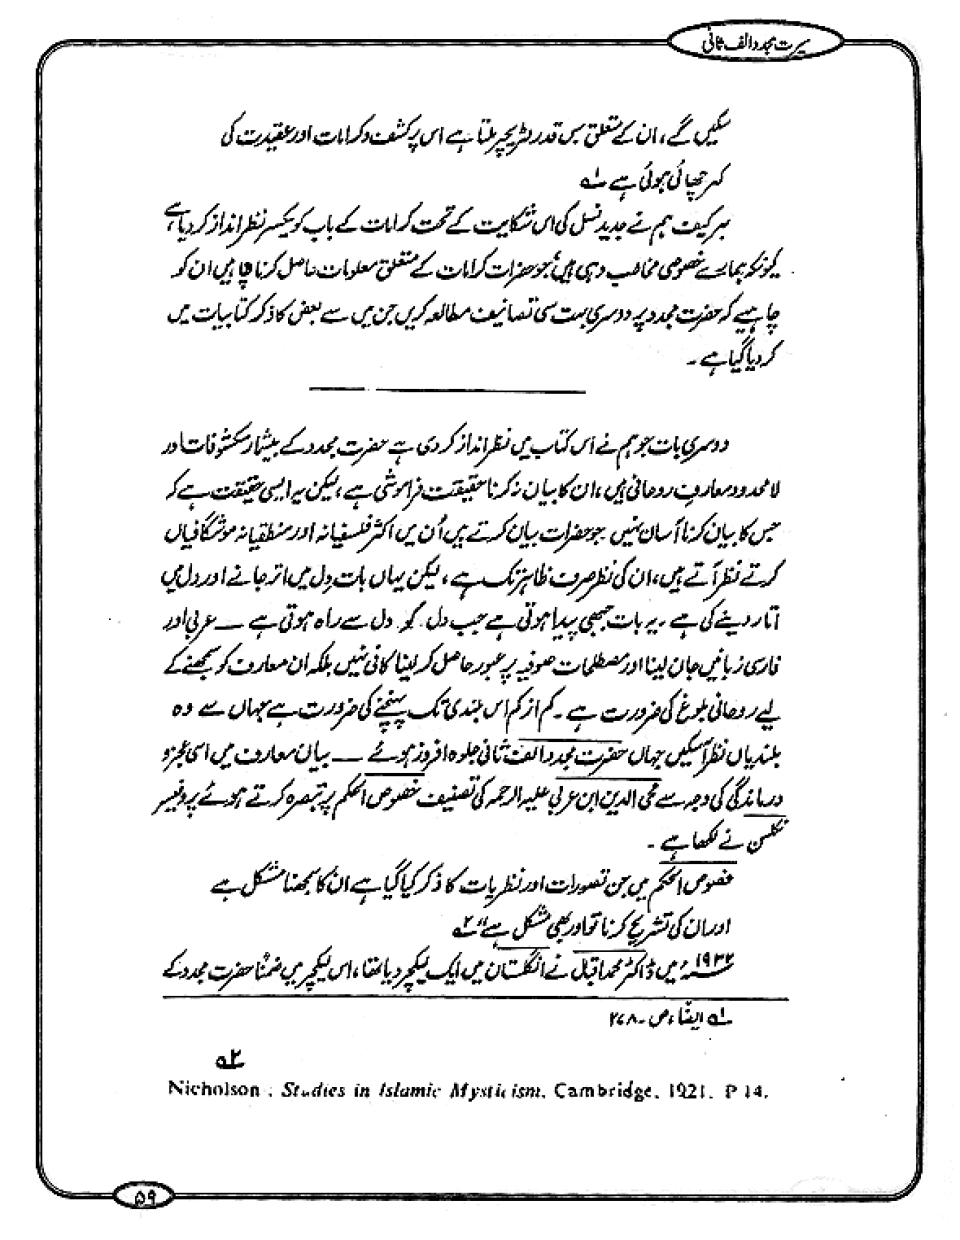 سیرت مجدد الف ثانی
سکیں گے، ان کے متعلق جس قدر لٹریچر ملتا ہے اس پر کشف و کرامات اور عقیدت کی
کہر چھائی ہوئی ہے ۱ے
بہرکیف ہم نے جدید نسل کی اس شکایت کے تحت کرامات کے باب کو یکسر نظر انداز کر دیا ہے،
کیونکہ ہمارے خصوصی مخاطب وہی ہیں؛ جو حضرات کرامات کے متعلق معلومات حاصل کرنا چاہیں ان کو
چاہیے کہ حضرت مجدد پر دوسری بہت سی تصانیف مطالعہ کریں جن میں سے بعض کا ذکر کتابیات میں
کر دیا گیا ہے۔
دوسری بات جو ہم نے اس کتاب میں نظر انداز کر دی ہے حضرت مجدد کے بیشمار مکشوفات اور
لامحدود معارفِ روحانی ہیں، ان کا بیان نہ کرنا حقیقت فراموشی ہے، لیکن یہ ایسی حقیقت ہے کہ
جس کا بیان کرنا آسان نہیں جو حضرات بیان کرتے ہیں اُن میں اکثر فلسفیانہ اور منطقیانہ موشگافیاں
کرتے نظر آتے ہیں، ان کی نظر صرف ظاہر تک ہے، لیکن یہاں بات دل میں اتر جانے اور دل میں
اتار دینے کی ہے۔ یہ بات جبھی پیدا ہوتی ہے جب دل کو دل سے راہ ہوتی ہے — عربی اور
فارسی زبانیں جان لینا اور مصطلحات صوفیہ پر عبور حاصل کر لینا کافی نہیں بلکہ ان معارف کو سمجھنے کے
لیے روحانی بلوغ کی ضرورت ہے۔ کم از کم اس بلندی تک پہنچنے کی ضرورت ہے جہاں سے وہ
بلندیاں نظر آسکیں جہاں حضرت مجدد الف ثانی جلوہ افروز ہوئے — بیان معارف میں اسی عجز و
درماندگی کی وجہ سے محی الدین ابن عربی علیہ الرحمہ کی تصنیف خصوص الحکم پر تبصرہ کرتے ہوئے پروفیسر
نکلسن نے لکھا ہے۔
فصوص الحکم میں جن تصورات اور نظریات کا ذکر کیا گیا ہے ان کا سمجھنا مشکل ہے
اور ان کی تشریح کرنا تو اور بھی مشکل ہے" ۲ے
۱۹۳۲ء میں ڈاکٹر محمد اقبال نے انگلستان میں ایک لیکچر دیا تھا، اس لیکچر میں ضمنًا حضرت مجدد کے
۱ے ایضًا، ص۔ ۲۷۸
۲ے
Nicholson : Studies in Islamic Mysticism, Cambridge. 1921. P 14.
۵۹